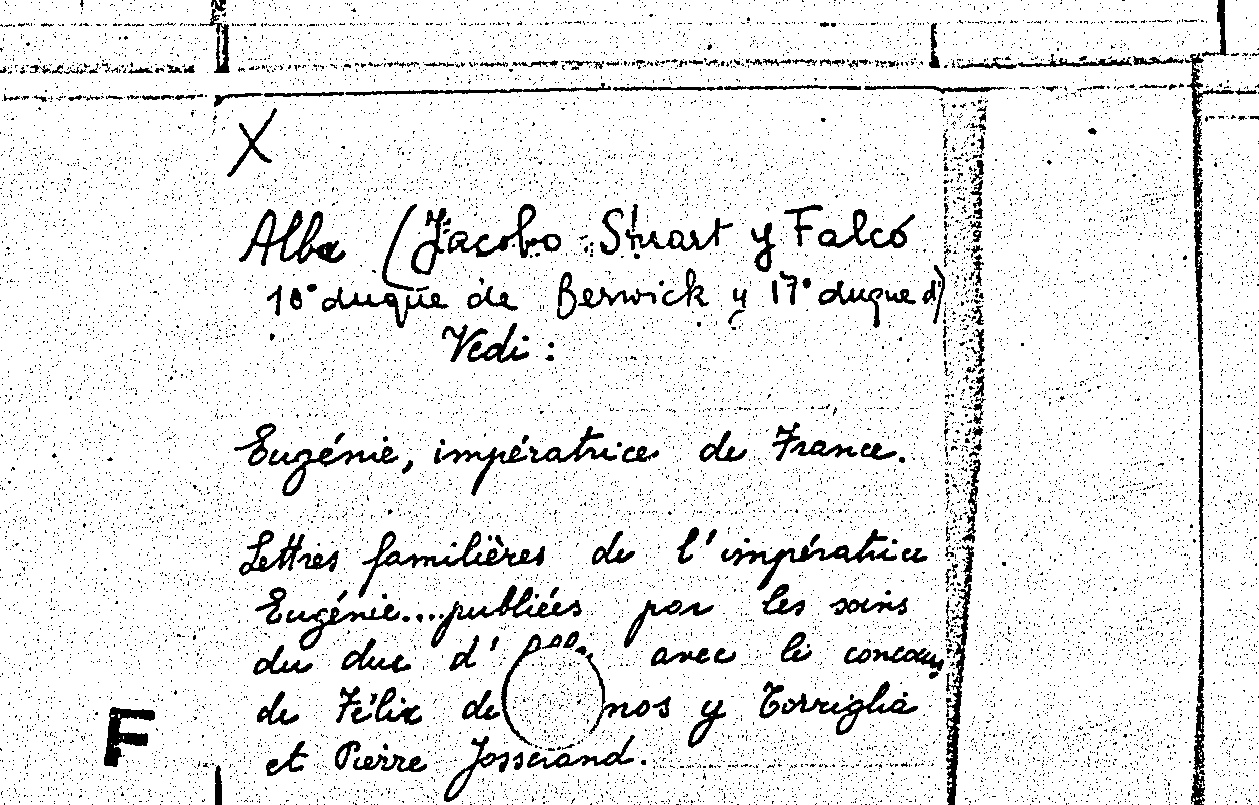 X
Alba (Jacobo Stuart y Falcó
10° duque de Berwick y 17° duque d')
Vedi :
Eugénie, impératrice de France.
Lettres familières de l'impératrice
Eugénie...publiées par les soins
du duc d' avec le concours
de Félix de nos y Torriglia
et Pierre Josserand.
F